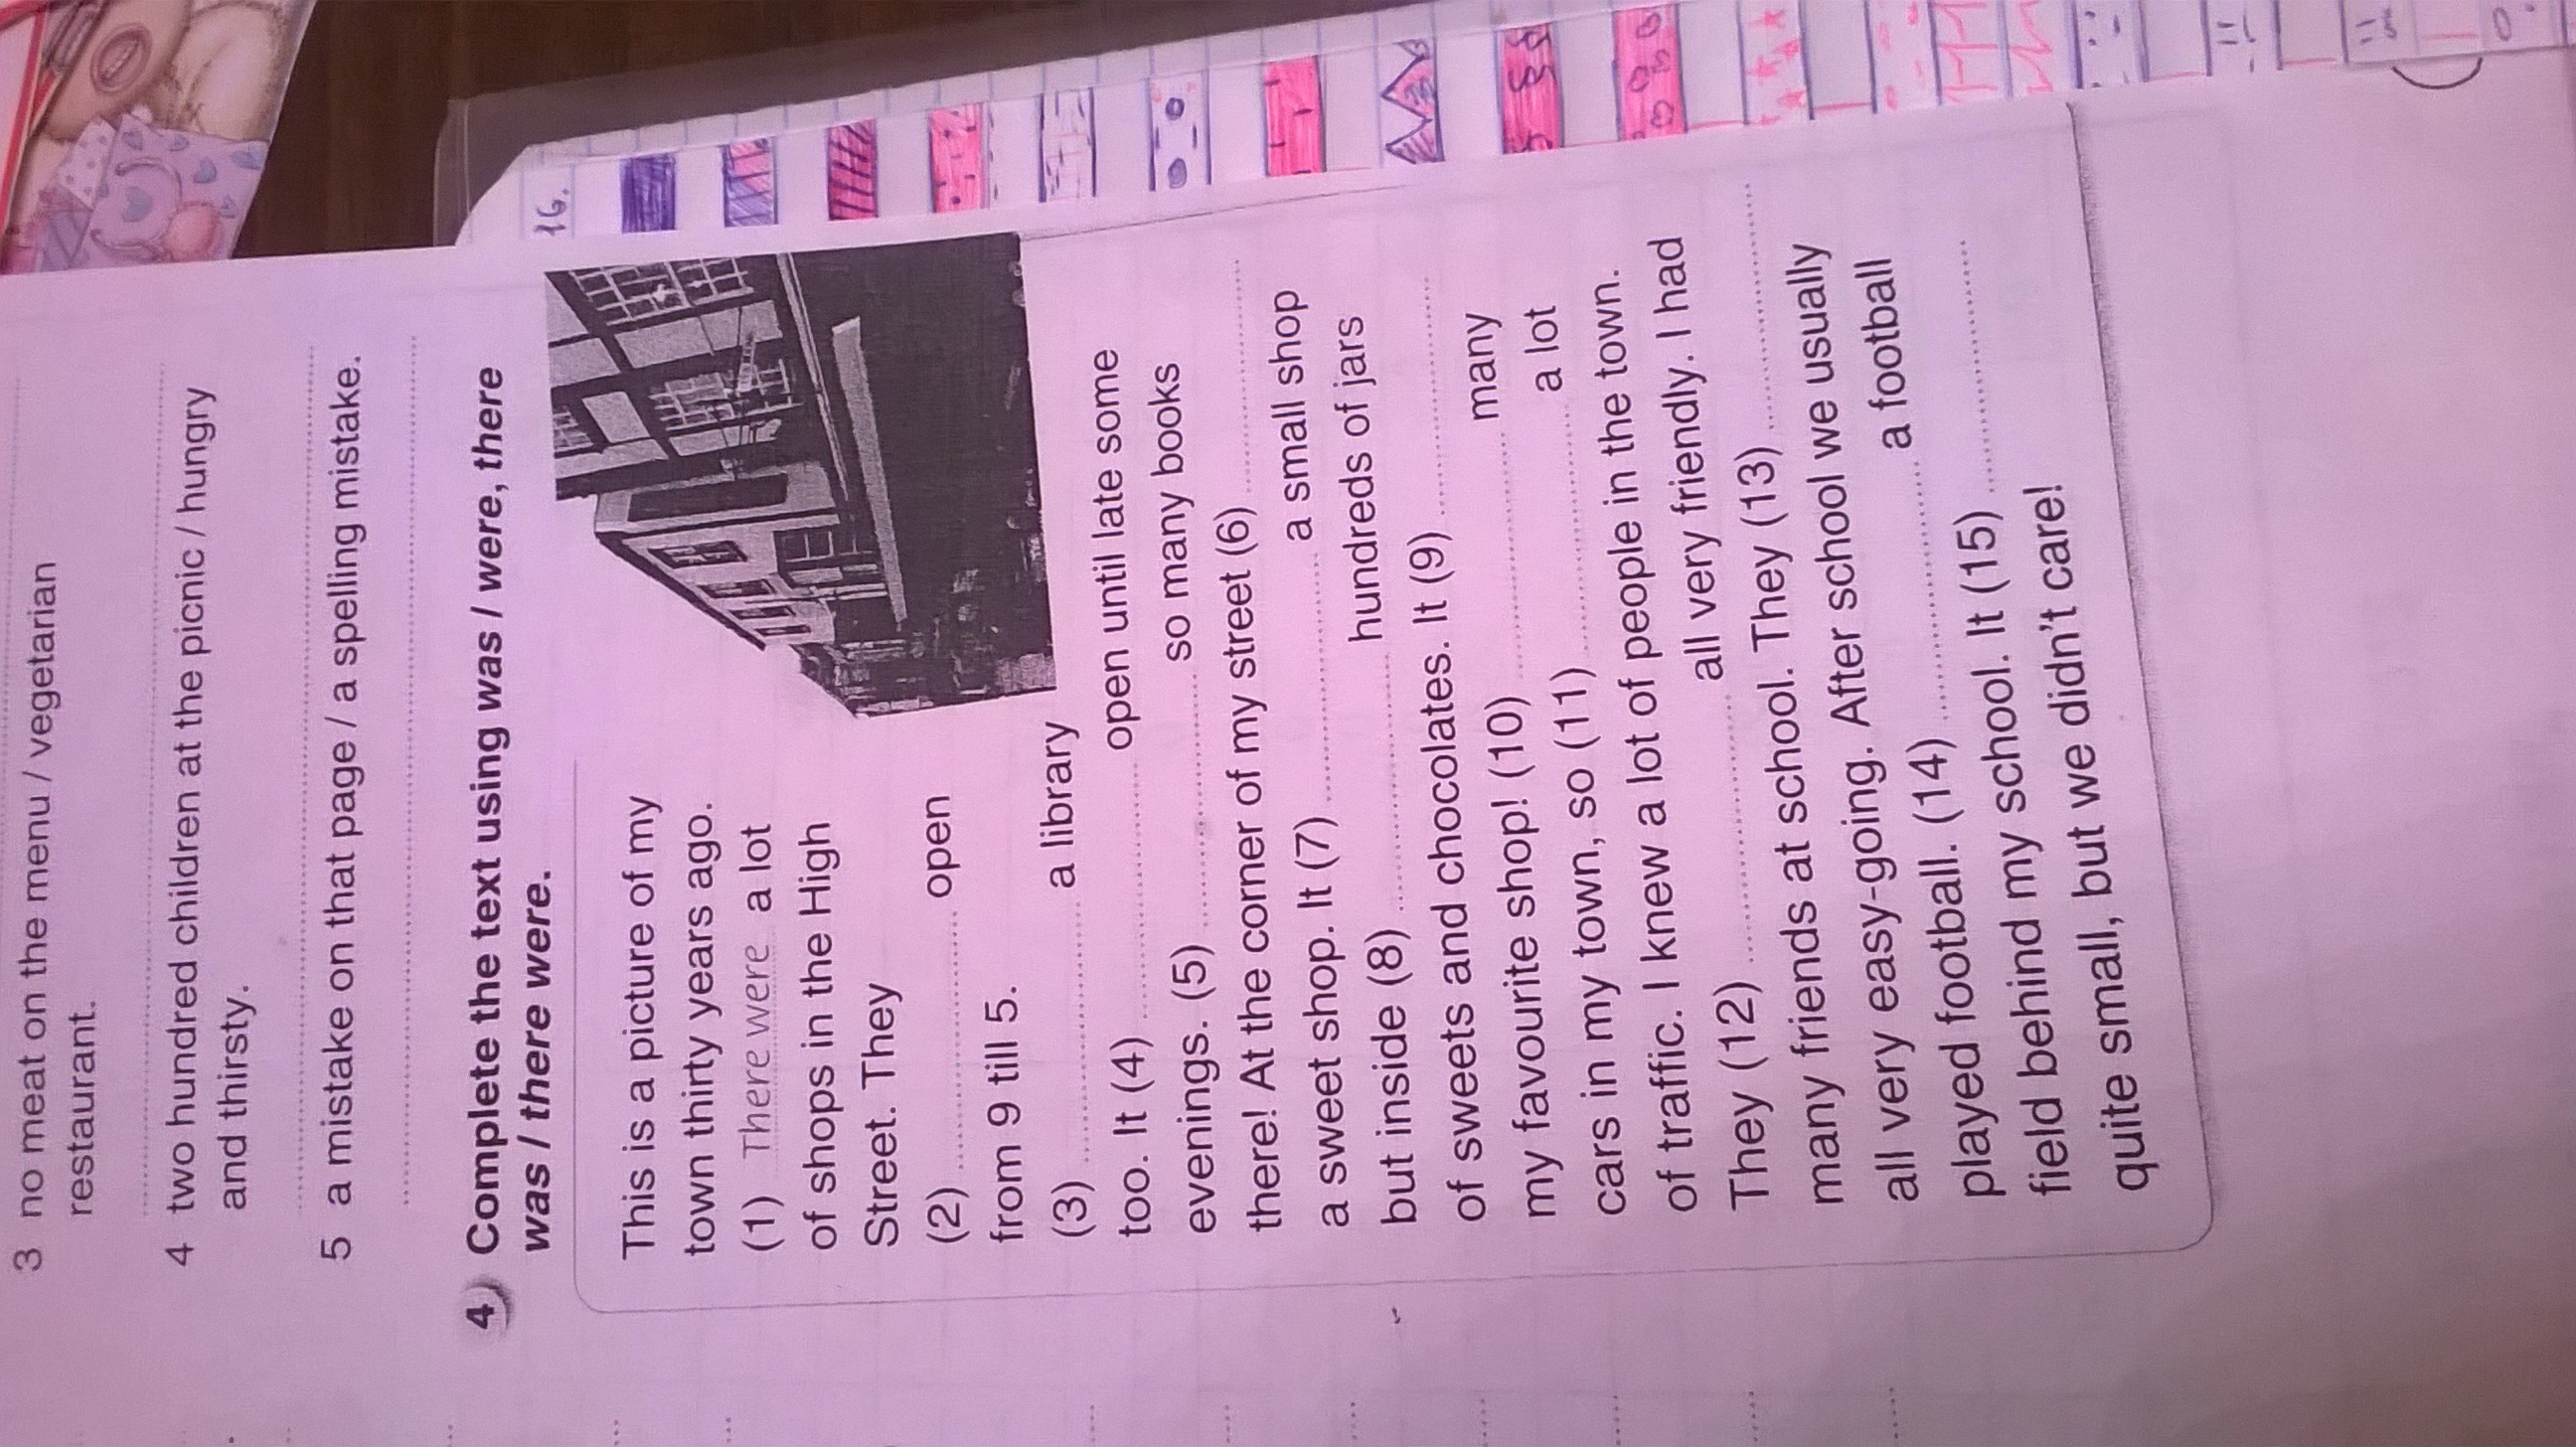 3 no meat on the menu / vegetarian
restaurant.
4 two hundred children at the picnic / hungry
and thirsty.
5 a mistake on that page / a spelling mistake.
4 Complete the text using was / were, there
was / there were.
This is a picture of my
town thirty years ago.
(1) There were a lot
of shops in the High
Street. They
(2) .................... open
from 9 till 5.
(3) .................... a library
too. It (4) .................... open until late some
evenings. (5) .................... so many books
there! At the corner of my street (6) ....................
a sweet shop. It (7) .................... a small shop
but inside (8) .................... hundreds of jars
of sweets and chocolates. It (9) ....................
my favourite shop! (10) .................... many
cars in my town, so (11) .................... a lot
of traffic. I knew a lot of people in the town.
They (12) .................... all very friendly. I had
many friends at school. They (13) ....................
all very easy-going. After school we usually
played football. (14) .................... a football
field behind my school. It (15) ....................
quite small, but we didn't care!
16.